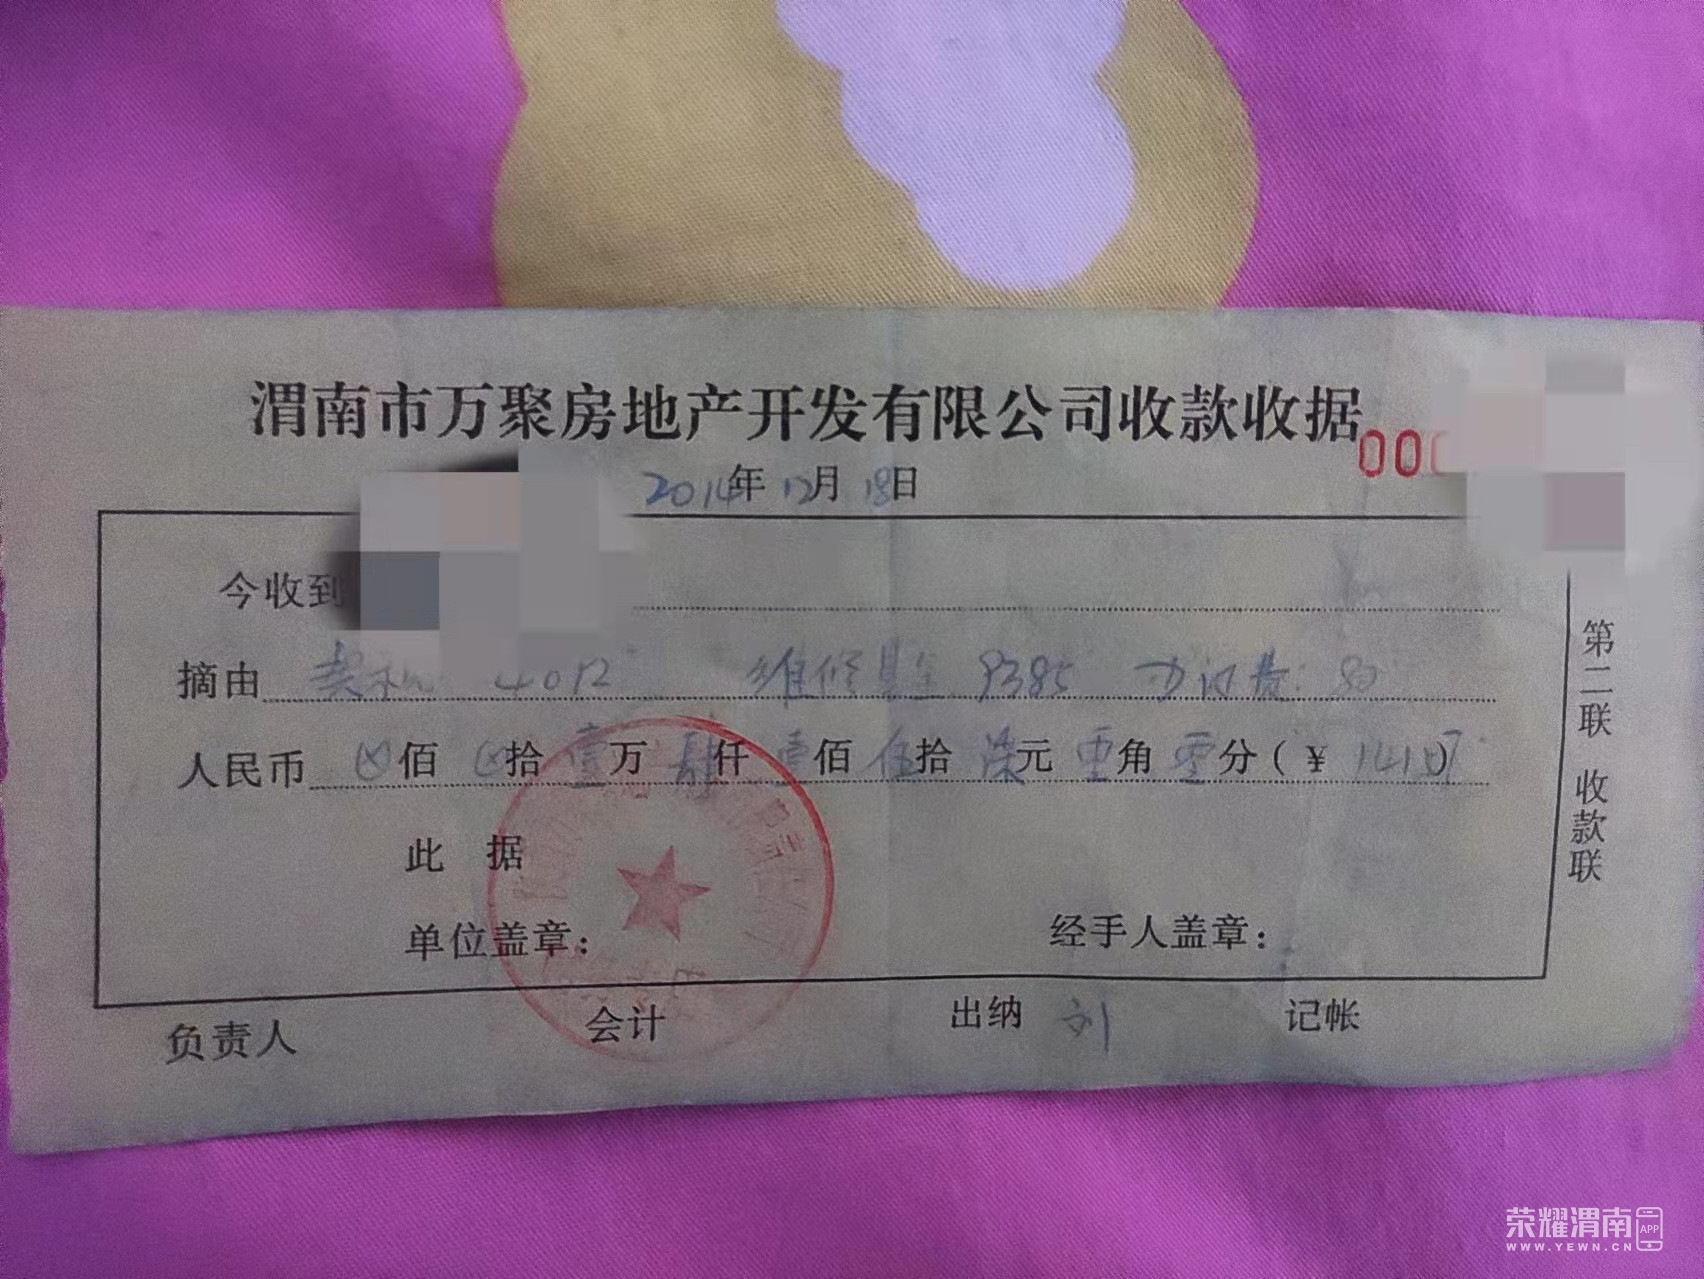 渭南市万聚房地产开发有限公司收款收据
000
2014年 12月 18日
今收到
摘由 契税 4012 维修基金 9385 办证费: 80
人民币 ⊗佰 ⊗拾 壹万 肆仟 壹佰 伍拾 柒元 零角 零分 (¥ 14157)
此 据
单位盖章: 经手人盖章:
负责人 会计 出纳 刘 记帐
第二联 收款联
荣耀渭南 APP
WWW.YEWN.CN